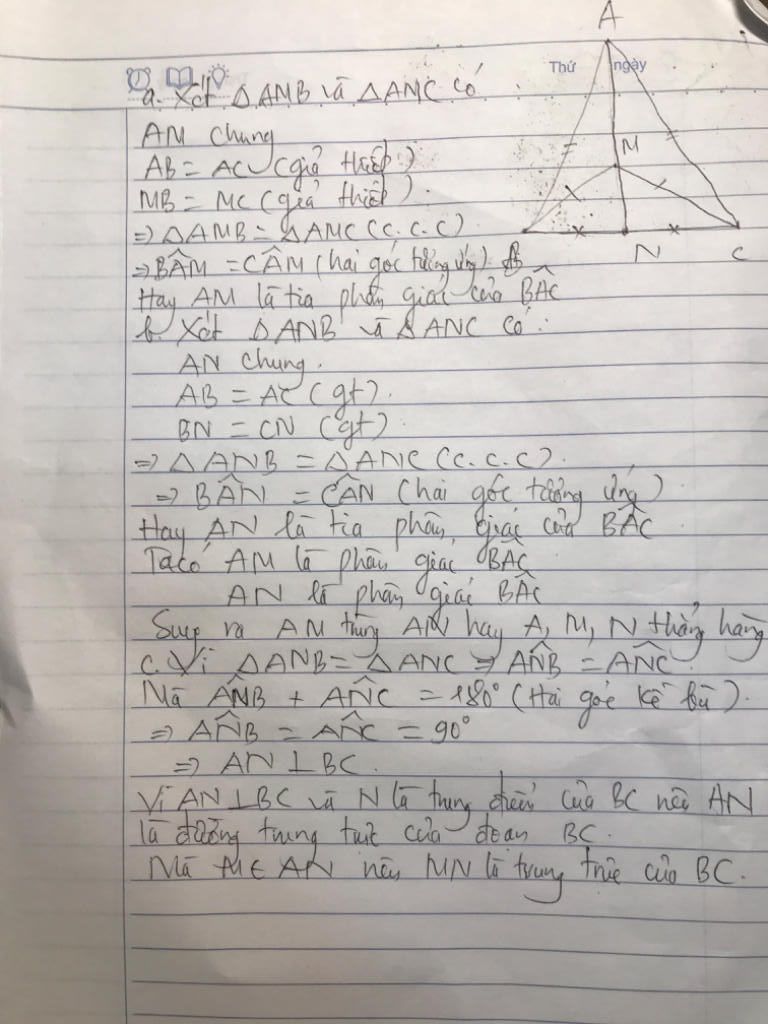 A
Thứ ngày
a. Xét △AMB và △AMC có
AM chung
AB = AC (giả thiết)
M
MB = MC (giả thiết).
⇒ △AMB = △AMC (c.c.c)
N
C
⇒ BÂM = CÂM (hai góc tương ứng) B
Hay AM là tia phân giác của BÂC
b. Xét △ANB và △ANC có:
AN chung.
AB = AC (gt).
BN = CN (gt)
⇒ △ANB = △ANC (c.c.c).
⇒ BÂN = CÂN (hai góc tương ứng)
Hay AN là tia phân giác của BÂC
Ta có AM là phân giác BÂC
AN là phân giác BÂC
Suy ra AM trùng AN hay A, M, N thẳng hàng
c. Vì △ANB = △ANC ⇒ AN̂B = AN̂C.
Mà AN̂B + AN̂C = 180° (Hai góc kề bù).
⇒ AN̂B = AN̂C = 90°
⇒ AN ⊥ BC.
Vì AN ⊥ BC và N là trung điểm của BC nên AN
là đường trung trực của đoạn BC.
Mà M ∈ AN nên MN là trung trực của BC.